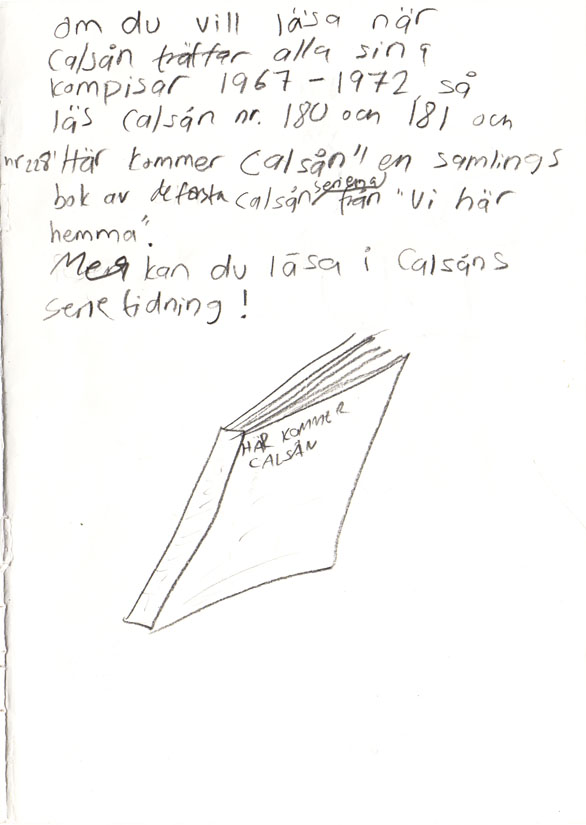 Om du vill läsa när
Calsån träffar alla sina
kompisar 1967-1972, så
läs Calsån nr. 180 och 181 och
nr 228 "Här kommer Calsån" en samlings
bok av de första Calsån serierna från "Vi här
hemma".
Mera kan du läsa i Calsåns
serietidning!
HÄR KOMMER
CALSÅN